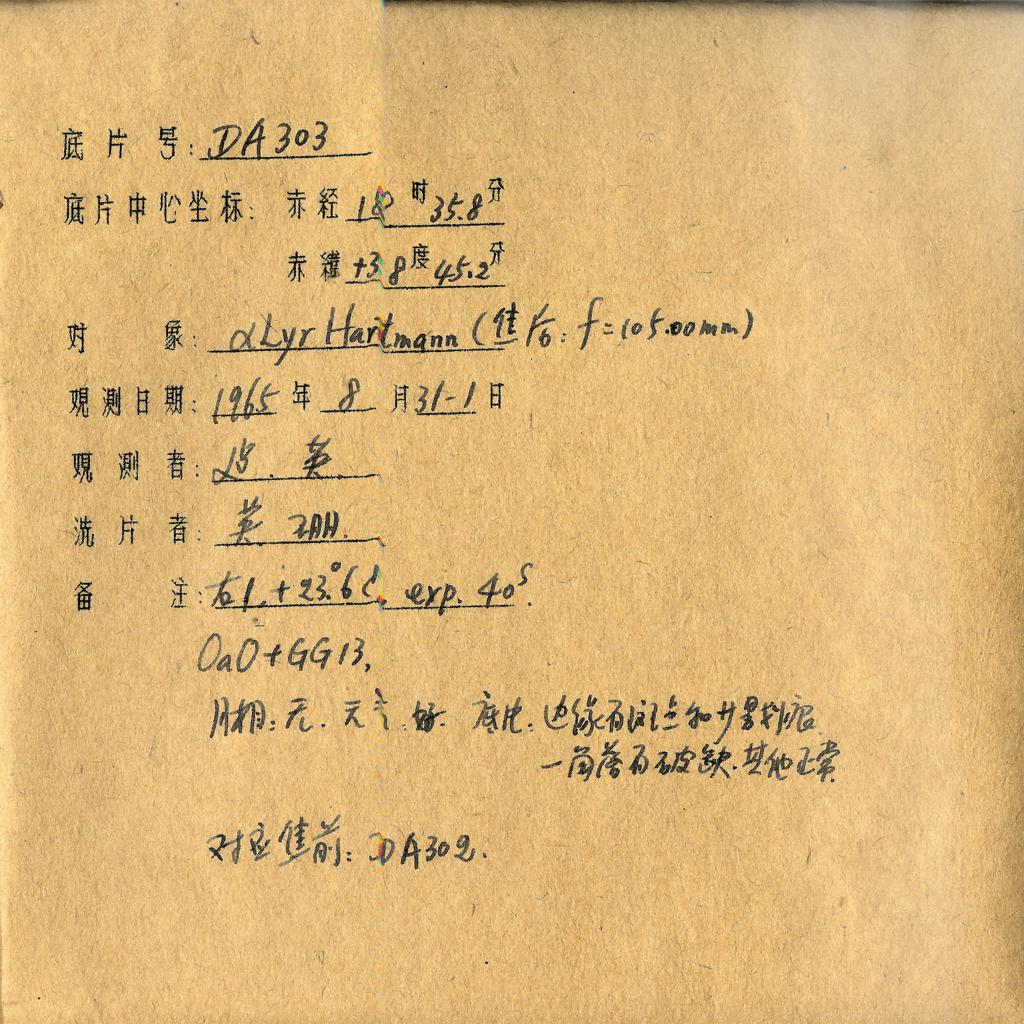 底片号: DA303
底片中心坐标: 赤经 18时35.8分
赤纬 +38度45.2分
对象: αLyr Hartmann (焦后: f=105.00mm)
观测日期: 1965年8月31-1日
观测者: 英.
洗片者: 英
备注: 右1, +23.°6C, exp. 40s.
OaO+GG13,
月相: 无. 天气: 好. 底片: 边缘有斑点和少量划痕,
一角落有破缺.其他正常
对应焦前: DA302.